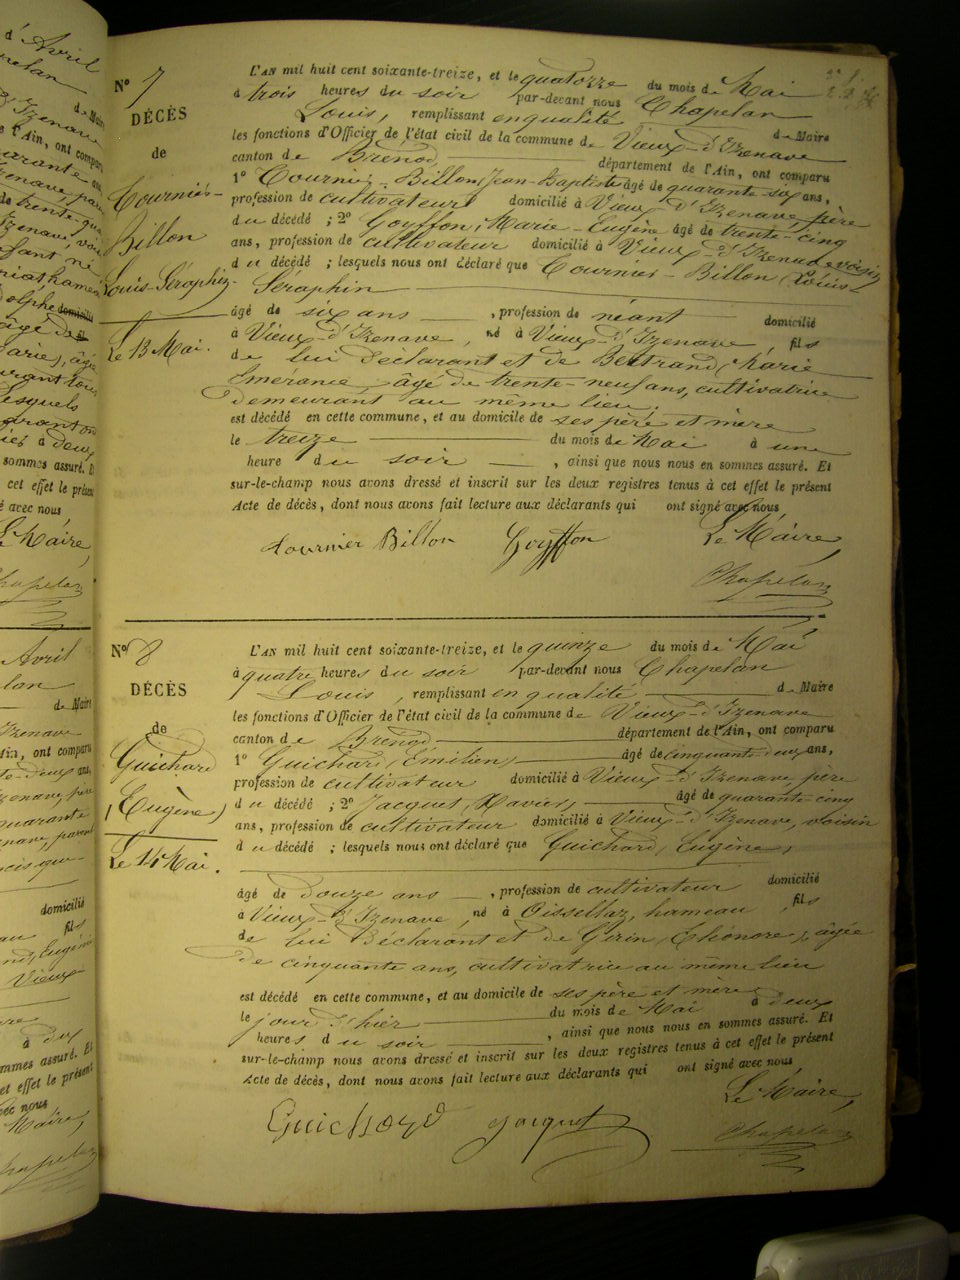 N° 7
DÉCÈS
de
Tournier-
Billon
Louis-Séraphin
Le 13 Mai.
L'AN mil huit cent soixante-treize, et le quatorze du mois de Mai
à trois heures du soir par-devant nous Chapelan
Louis, remplissant en qualité de Maire
les fonctions d'Officier de l'état civil de la commune de Vieux-d'Izenave
canton de Brénod département de l'Ain, ont comparu
1° Tournier-Billon, Jean-Baptiste âgé de quarante six ans,
profession de cultivateur domicilié à Vieux d'Izenave, père
du décédé ; 2° Goyffon, Marie-Eugène âgé de trente-cinq
ans, profession de cultivateur domicilié à Vieux-d'Izenave voisin
du décédé ; lesquels nous ont déclaré que Tournier-Billon (Louis-
Séraphin
âgé de six ans, profession de néant domicilié
à Vieux-d'Izenave, né à Vieux-d'Izenave, fils
de lui déclarant et de Bertrand, Marie
Emérance, âgé de trente-neuf ans, cultivatrice
demeurant au même lieu.
est décédé en cette commune, et au domicile de ses père et mère
le treize du mois de Mai à une
heure du soir, ainsi que nous nous en sommes assuré. Et
sur-le-champ nous avons dressé et inscrit sur les deux registres tenus à cet effet le présent
Acte de décès, dont nous avons fait lecture aux déclarants qui ont signé avec nous
Tournier Billon Goyffon Le Maire,
Chapelan
N° 8
DÉCÈS
de
Guichard
(Eugène)
Le 14 Mai.
L'AN mil huit cent soixante-treize, et le quinze du mois de Mai
à quatre heures du soir par-devant nous Chapelan
Louis, remplissant en qualité de Maire
les fonctions d'Officier de l'état civil de la commune de Vieux-d'Izenave
canton de Brénod département de l'Ain, ont comparu
1° Guichard (Emilien) âgé de cinquante deux ans,
profession de cultivateur domicilié à Vieux-d'Izenave, père
du décédé ; 2° Jacquet, Xavier, âgé de quarante-cinq
ans, profession de cultivateur domicilié à Vieux-d'Izenave, voisin
du décédé ; lesquels nous ont déclaré que Guichard, Eugène,
âgé de douze ans, profession de cultivateur domicilié
à Vieux-d'Izenave, né à Oisellaz, hameau, fils
de lui déclarant et de Girin (Eléonore), âgée
de cinquante ans, cultivatrice au même lieu
est décédé en cette commune, et au domicile de ses père et mère
le jour d'hier du mois de Mai à deux
heures du soir, ainsi que nous nous en sommes assuré. Et
sur-le-champ nous avons dressé et inscrit sur les deux registres tenus à cet effet le présent
Acte de décès, dont nous avons fait lecture aux déclarants qui ont signé avec nous
Guichard Jacquet Le Maire,
Chapelan